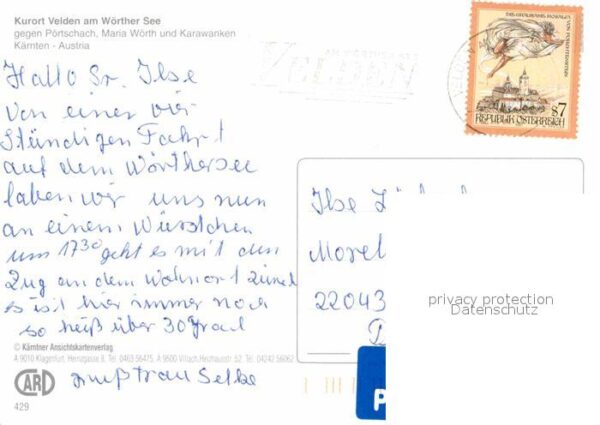 Kurort Velden am Wörther See
gegen Pörtschach, Maria Wörth und Karawanken
Kärnten - Austria
Hallo Sr. Ilse
von einer vier
Stündigen Fahrt
auf dem Wörthersee
laben wir uns nun
an einem Würstchen
um 1730 geht es mit den
Zug an dem Wohnort zurück
es ist hier immer noch
so heiß über 30 Grad
© Kärntner Ansichtskartenverlag
A 9010 Klagenfurt, Herrengasse 8, Tel. 0463 56475, A 9500 Villach, Tel. 04242 56062
CARD
429
VELDEN
VON FORCHTENSTEIN
s7
REPUBLIK ÖSTERREICH
Ilse
Morel
22043
privacy protection
Datenschutz
P